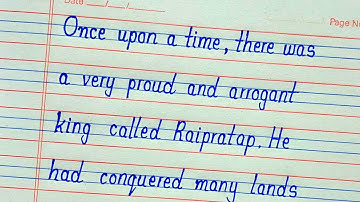 Date ___/___/___
Page No
Once upon a time, there was
a very proud and arrogant
king called Raipratap. He
had conquered many lands